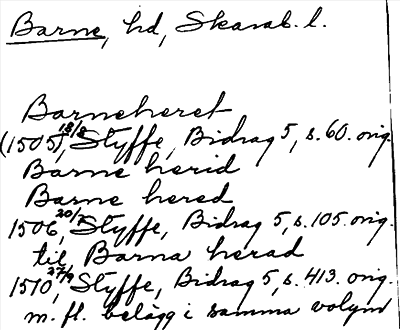 Barne, hd, Skarab. l.
Barneheret
(1505) 18/8, Styffe, Bidrag 5, s. 60. orig.
Barne herid
Barne hered
1506 20/7, Styffe, Bidrag 5, s. 105. orig.
til Barna herad
1510 27/9, Styffe, Bidrag 5, s. 413. orig.
m. fl. belägg i samma volym